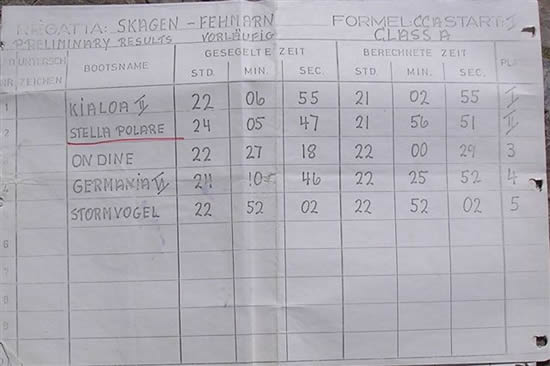 REGATTA: SKAGEN - FEHMARN FORMEL: CCA START: I
PRELIMINARY RESULTS VORLÄUFIG CLASS A
NR. UNTERSCH ZEICHEN BOOTSNAME GESEGELTE ZEIT BERECHNETE ZEIT
STD. MIN. SEC. STD. MIN. SEC.
1 KIALOA II 22 06 55 21 02 55 I
2 STELLA POLARE 24 05 47 21 56 51 II
ONDINE 22 27 18 22 00 29 3
GERMANIA VI 24 10 46 22 25 52 4
STORMVOGEL 22 52 02 22 52 02 5
6
7
8
9